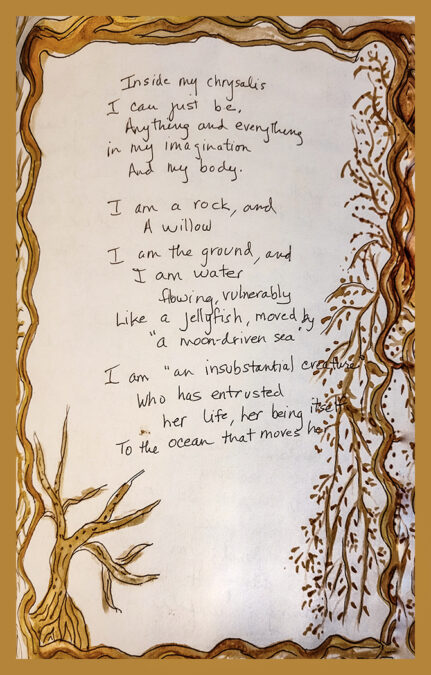 Inside my chrysalis
I can just be.
Anything and everything
in my imagination
And my body.
I am a rock, and
A willow
I am the ground, and
I am water
flowing, vulnerably
Like a jellyfish, moved by
"a moon-driven sea"
I am "an insubstantial creature"
Who has entrusted
her life, her being itself
To the ocean that moves her